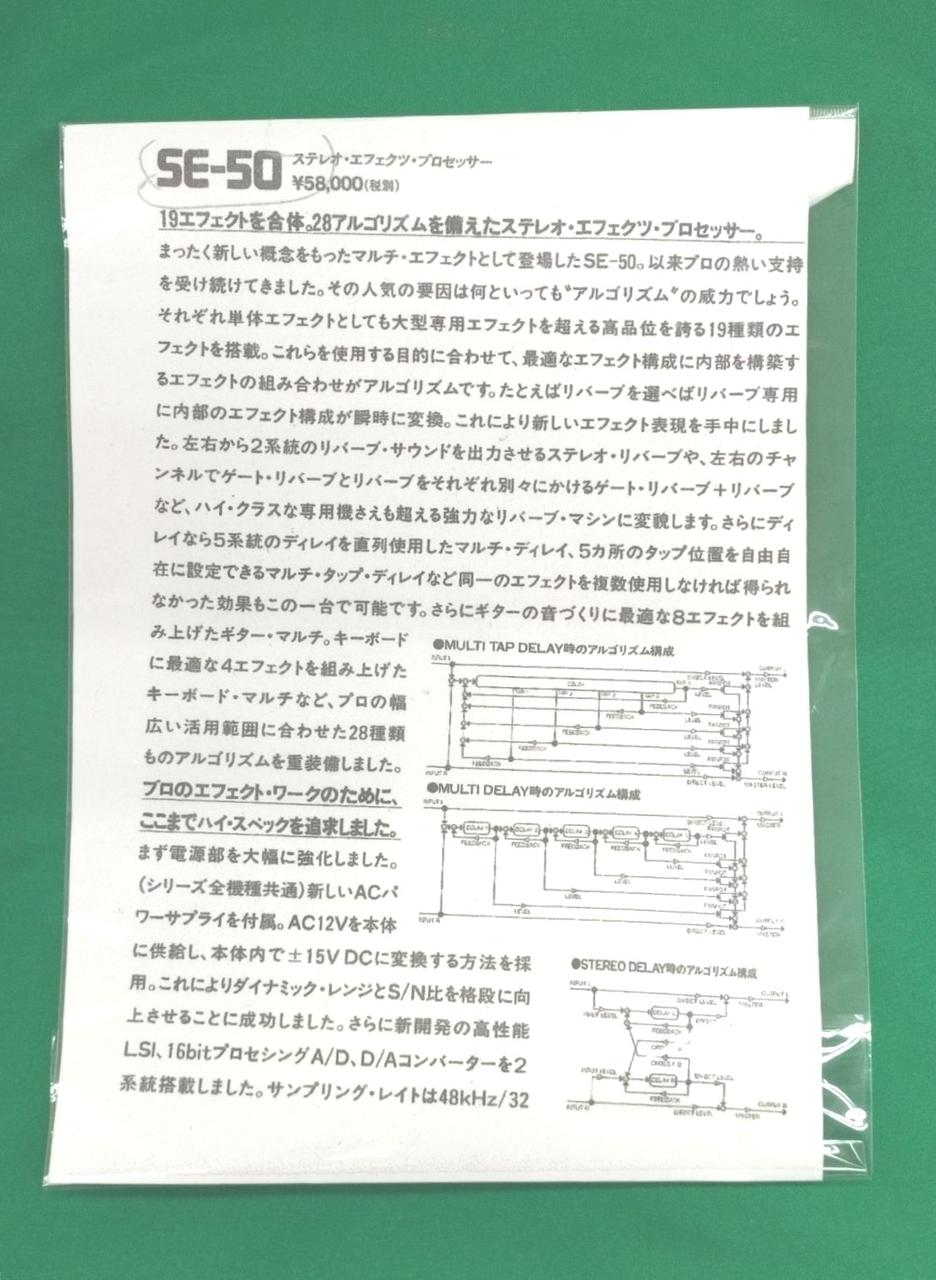 SE-50 ステレオ・エフェクツ・プロセッサー
¥58,000(税別)
19エフェクトを合体。28アルゴリズムを備えたステレオ・エフェクツ・プロセッサー。
まったく新しい概念をもったマルチ・エフェクトとして登場したSE-50。以来プロの熱い支持
を受け続けてきました。その人気の要因は何といっても“アルゴリズム”の威力でしょう。
それぞれ単体エフェクトとしても大型専用エフェクトを超える高品位を誇る19種類のエ
フェクトを搭載。これらを使用する目的に合わせて、最適なエフェクト構成に内部を構築す
るエフェクトの組み合わせがアルゴリズムです。たとえばリバーブを選べばリバーブ専用
に内部のエフェクト構成が瞬時に変換。これにより新しいエフェクト表現を手中にしまし
た。左右から2系統のリバーブ・サウンドを出力させるステレオ・リバーブや、左右のチャ
ンネルでゲート・リバーブとリバーブをそれぞれ別々にかけるゲート・リバーブ+リバーブ
など、ハイ・クラスな専用機さえも超える強力なリバーブ・マシンに変貌します。さらにディ
レイなら5系統のディレイを直列使用したマルチ・ディレイ、5カ所のタップ位置を自由自
在に設定できるマルチ・タップ・ディレイなど同一のエフェクトを複数使用しなければ得られ
なかった効果もこの一台で可能です。さらにギターの音づくりに最適な8エフェクトを組
み上げたギター・マルチ。キーボード
に最適な4エフェクトを組み上げた
キーボード・マルチなど、プロの幅
広い活用範囲に合わせた28種類
ものアルゴリズムを重装備しました。
プロのエフェクト・ワークのために、
ここまでハイ・スペックを追求しました。
まず電源部を大幅に強化しました。
(シリーズ全機種共通)新しいACパ
ワーサプライを付属。AC12Vを本体
に供給し、本体内で±15V DCに変換する方法を採
用。これによりダイナミック・レンジとS/N比を格段に向
上させることに成功しました。さらに新開発の高性能
LSI、16bitプロセシングA/D、D/Aコンバーターを2
系統搭載しました。サンプリング・レイトは48kHz/32
●MULTI TAP DELAY時のアルゴリズム構成
INPUT L
OUTPUT L
DELAY
LEVEL
FEEDBACK
LEVEL
FEEDBACK
LEVEL
FEEDBACK
LEVEL
INPUT R
DIRECT LEVEL
OUTPUT R
MASTER LEVEL
●MULTI DELAY時のアルゴリズム構成
INPUT L
OUTPUT L
DIRECT LEVEL
MASTER
DELAY 1
DELAY 2
DELAY 3
DELAY 4
DELAY 5
LEVEL
FEEDBACK
FEEDBACK
FEEDBACK
FEEDBACK
FEEDBACK
LEVEL
LEVEL
LEVEL
INPUT R
DIRECT LEVEL
MASTER
●STEREO DELAY時のアルゴリズム構成
INPUT L
OUTPUT L
DIRECT LEVEL
MASTER
FEEDBACK
INPUT LEVEL
EFFECT LEVEL
FEEDBACK
INPUT R
DIRECT LEVEL
MASTER
OUTPUT R